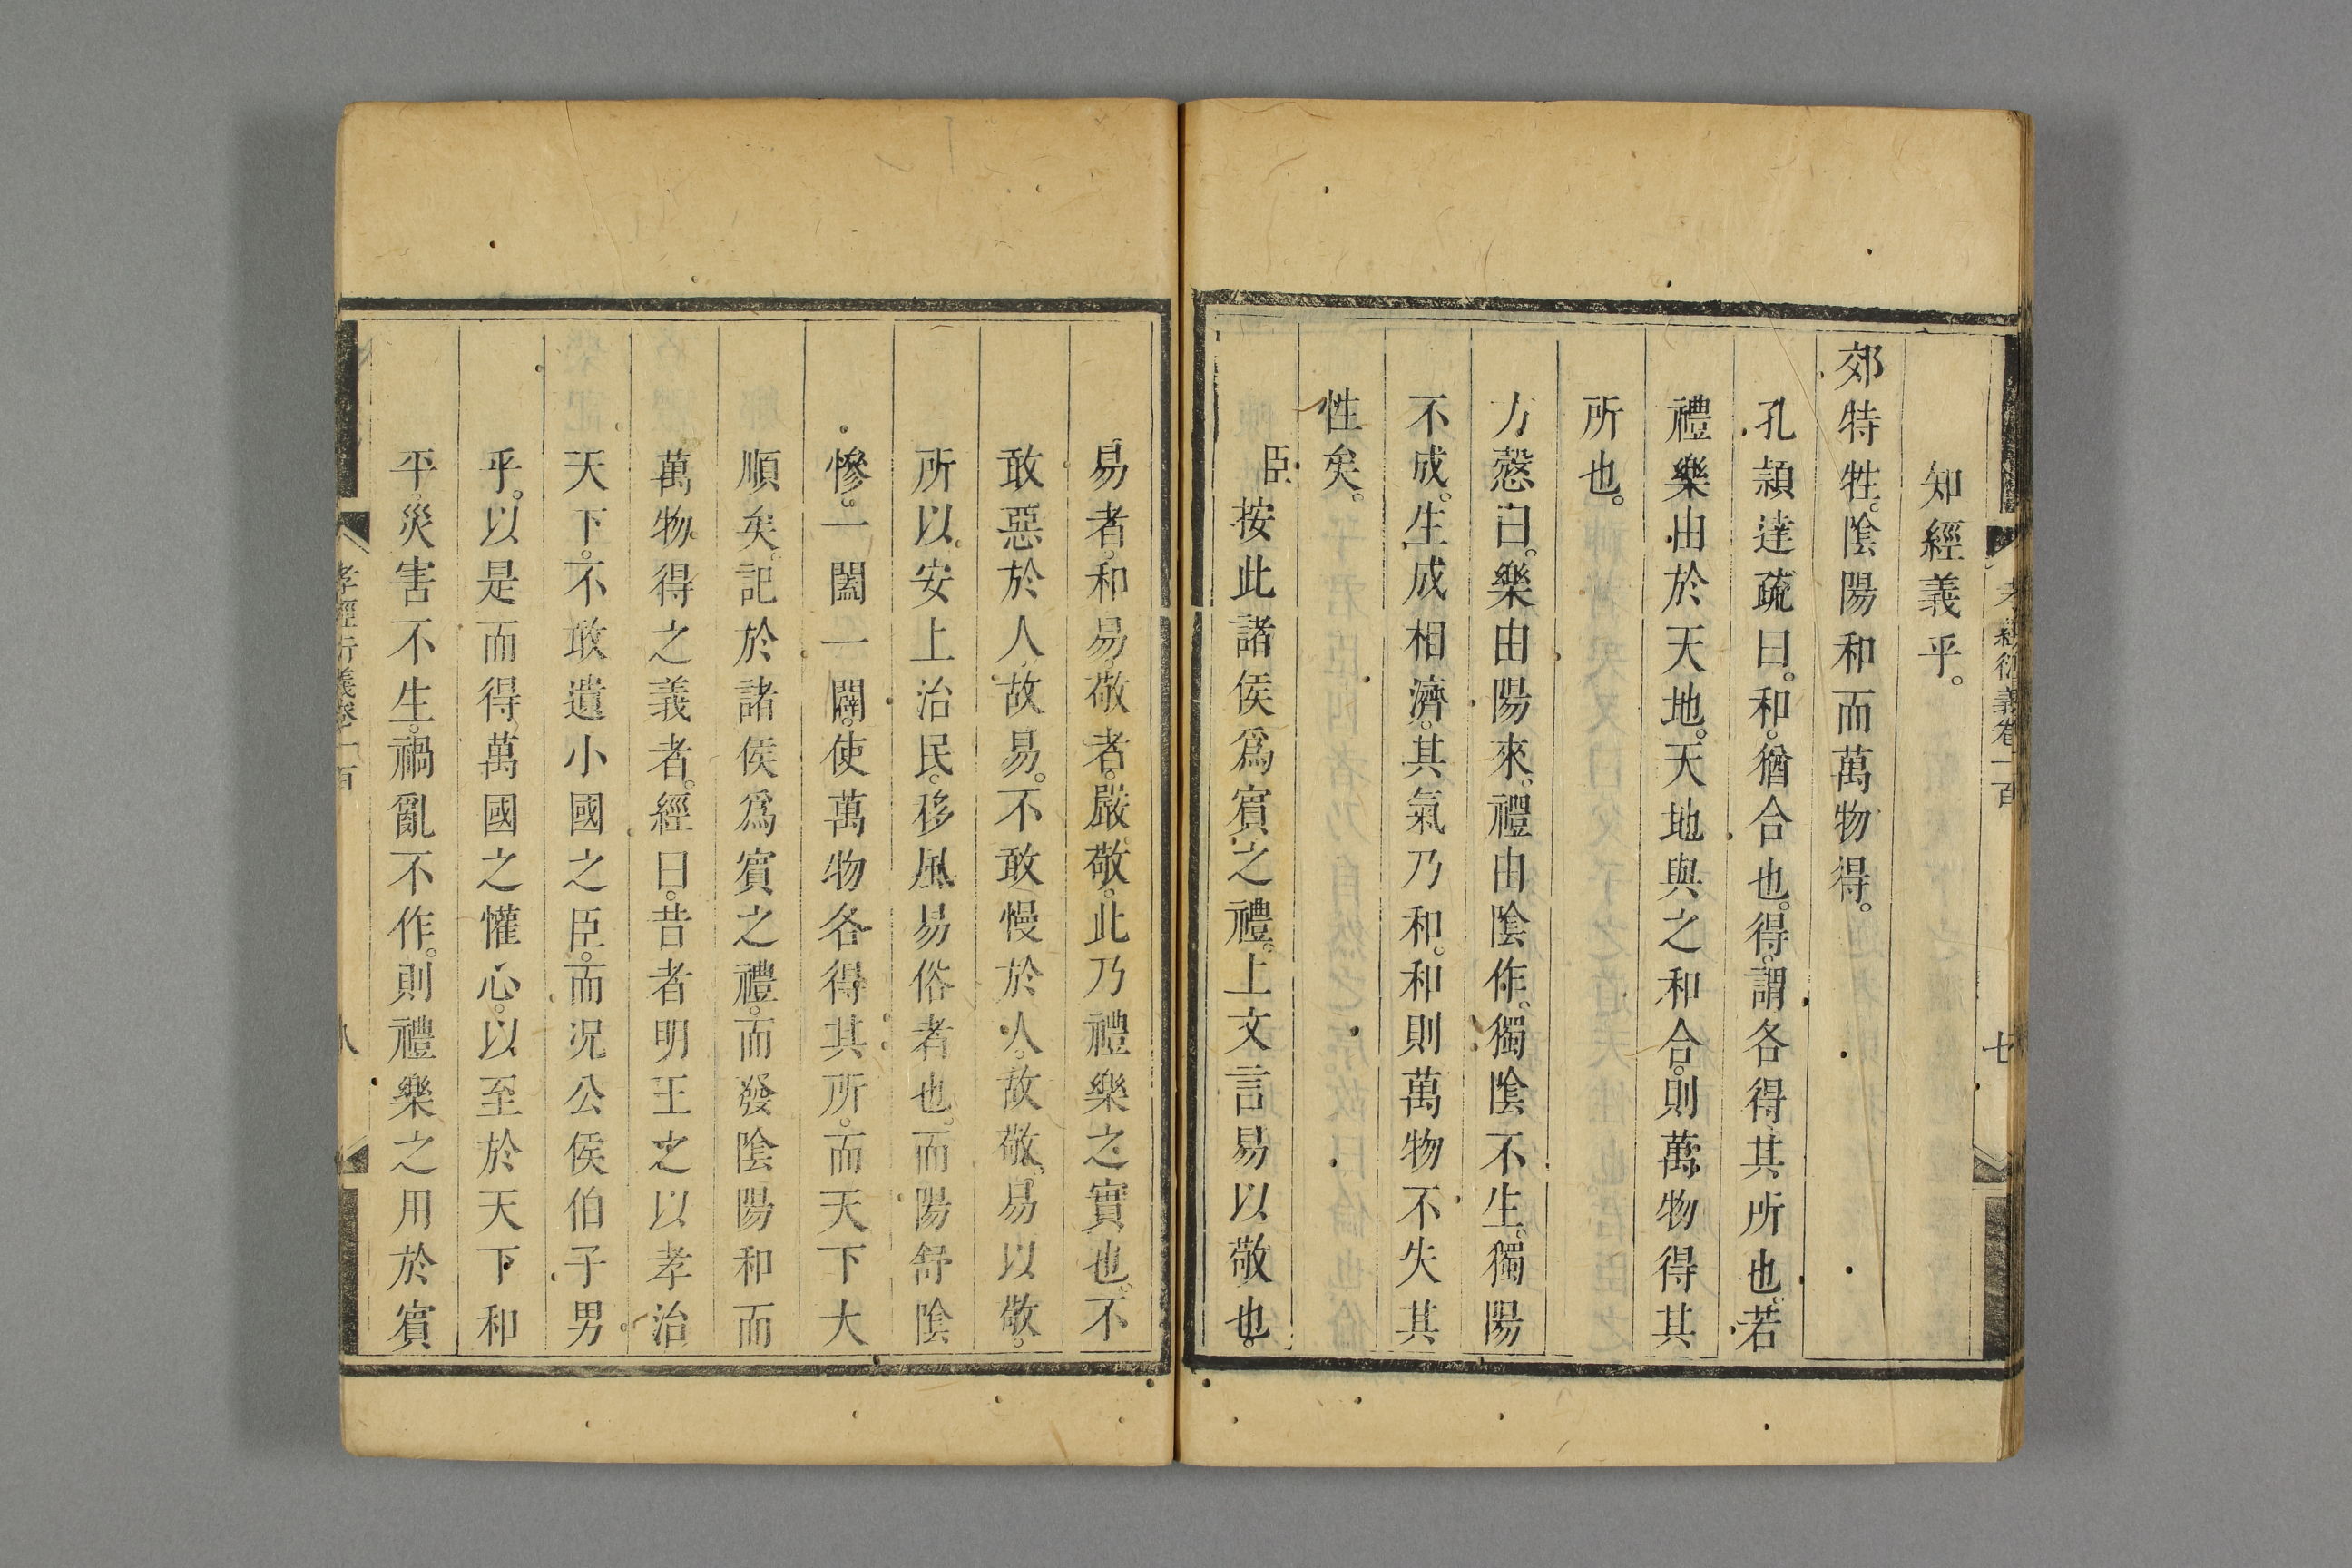 孝經衍義卷一百
七
知經義乎。
郊特牲。陰陽和而萬物得。
孔頴達疏曰。和。猶合也。得。謂各得其所也。若
禮樂由於天地。天地與之和合。則萬物得其
所也。
方慤曰。樂由陽來。禮由陰作。獨陰不生。獨陽
不成。生成相濟。其氣乃和。和則萬物不失其
性矣。
臣按此諸侯爲賓之禮。上文言易以敬也。
易者。和易。敬者。嚴敬。此乃禮樂之實也。不
敢惡於人。故易。不敢慢於人。故敬。易以敬。
所以安上治民。移風易俗者也。而陽舒陰
慘。一闔一闢。使萬物各得其所。而天下大
順矣。記於諸侯爲賓之禮。而發陰陽和而
萬物得之義者。經曰。昔者明王之以孝治
天下。不敢遺小國之臣。而况公侯伯子男
乎。以是而得萬國之懽心。以至於天下和
平。災害不生。禍亂不作。則禮樂之用於賓
孝經衍義卷一百
八